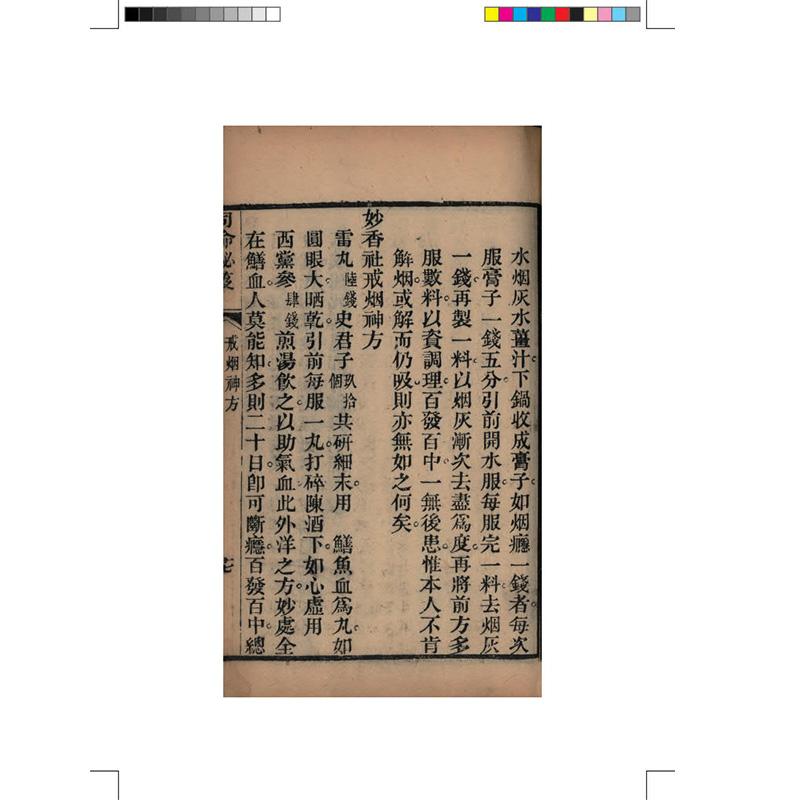 水烟灰水薑汁下鍋收成膏子如烟癮一錢者每次
服膏子一錢五分引前開水服每服完一料去烟灰
一錢再製一料以烟灰漸次去盡爲度再將前方多
服數料以資調理百發百中一無後患惟本人不肯
解烟或解而仍吸則亦無如之何矣
妙香社戒烟神方
雷丸陸錢史君子玖拾個共研細末用 鱔魚血爲丸如
圓眼大晒乾引前每服一丸打碎陳酒下如心虛用
西黨參肆錢煎湯飲之以助氣血此外洋之方妙處全
在鱔血人莫能知多則二十日卽可斷癮百發百中總
司命秘笈
戒烟神方